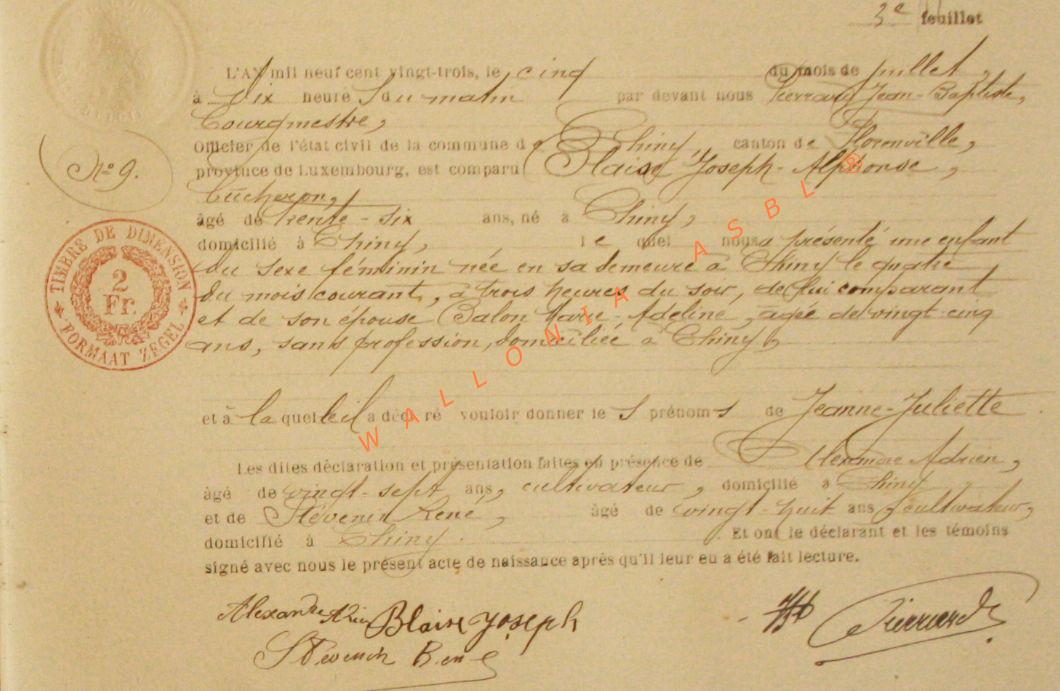 3e feuillet
L'AN mil neuf cent vingt-trois, le cinq du mois de juillet,
à dix heures du matin par devant nous Pierrard Jean-Baptiste,
bourgmestre,
Officier de l'état civil de la commune de Chiny, canton de Florenville,
province de Luxembourg, est comparu Blaise Joseph-Alphonse,
bucheron,
âgé de trente-six ans, né à Chiny,
domicilié à Chiny, lequel nous a présenté une enfant
du sexe féminin née en sa demeure à Chiny le quatre
du mois courant, à trois heures du soir, de lui comparant
et de son épouse Salon Marie-Adeline, agée de vingt-cinq
ans, sans profession, domiciliée à Chiny,
et à laquelle il a déclaré vouloir donner les prénoms de Jeanne-Juliette
Les dites déclaration et présentation faites en présence de Alexandre Adrien,
âgé de vingt-sept ans, cultivateur, domicilié à Chiny
et de Stévenin René, âgé de vingt-huit ans, cultivateur,
domicilié à Chiny. Et ont le déclarant et les témoins
signé avec nous le présent acte de naissance après qu'il leur eu a été fait lecture.
Alexandre Blaise Joseph Pierrard
Stevenin René
No 9.
TIMBRE DE DIMENSION
2
Fr.
FORMAAT ZEGEL
WALLONIA ASBL